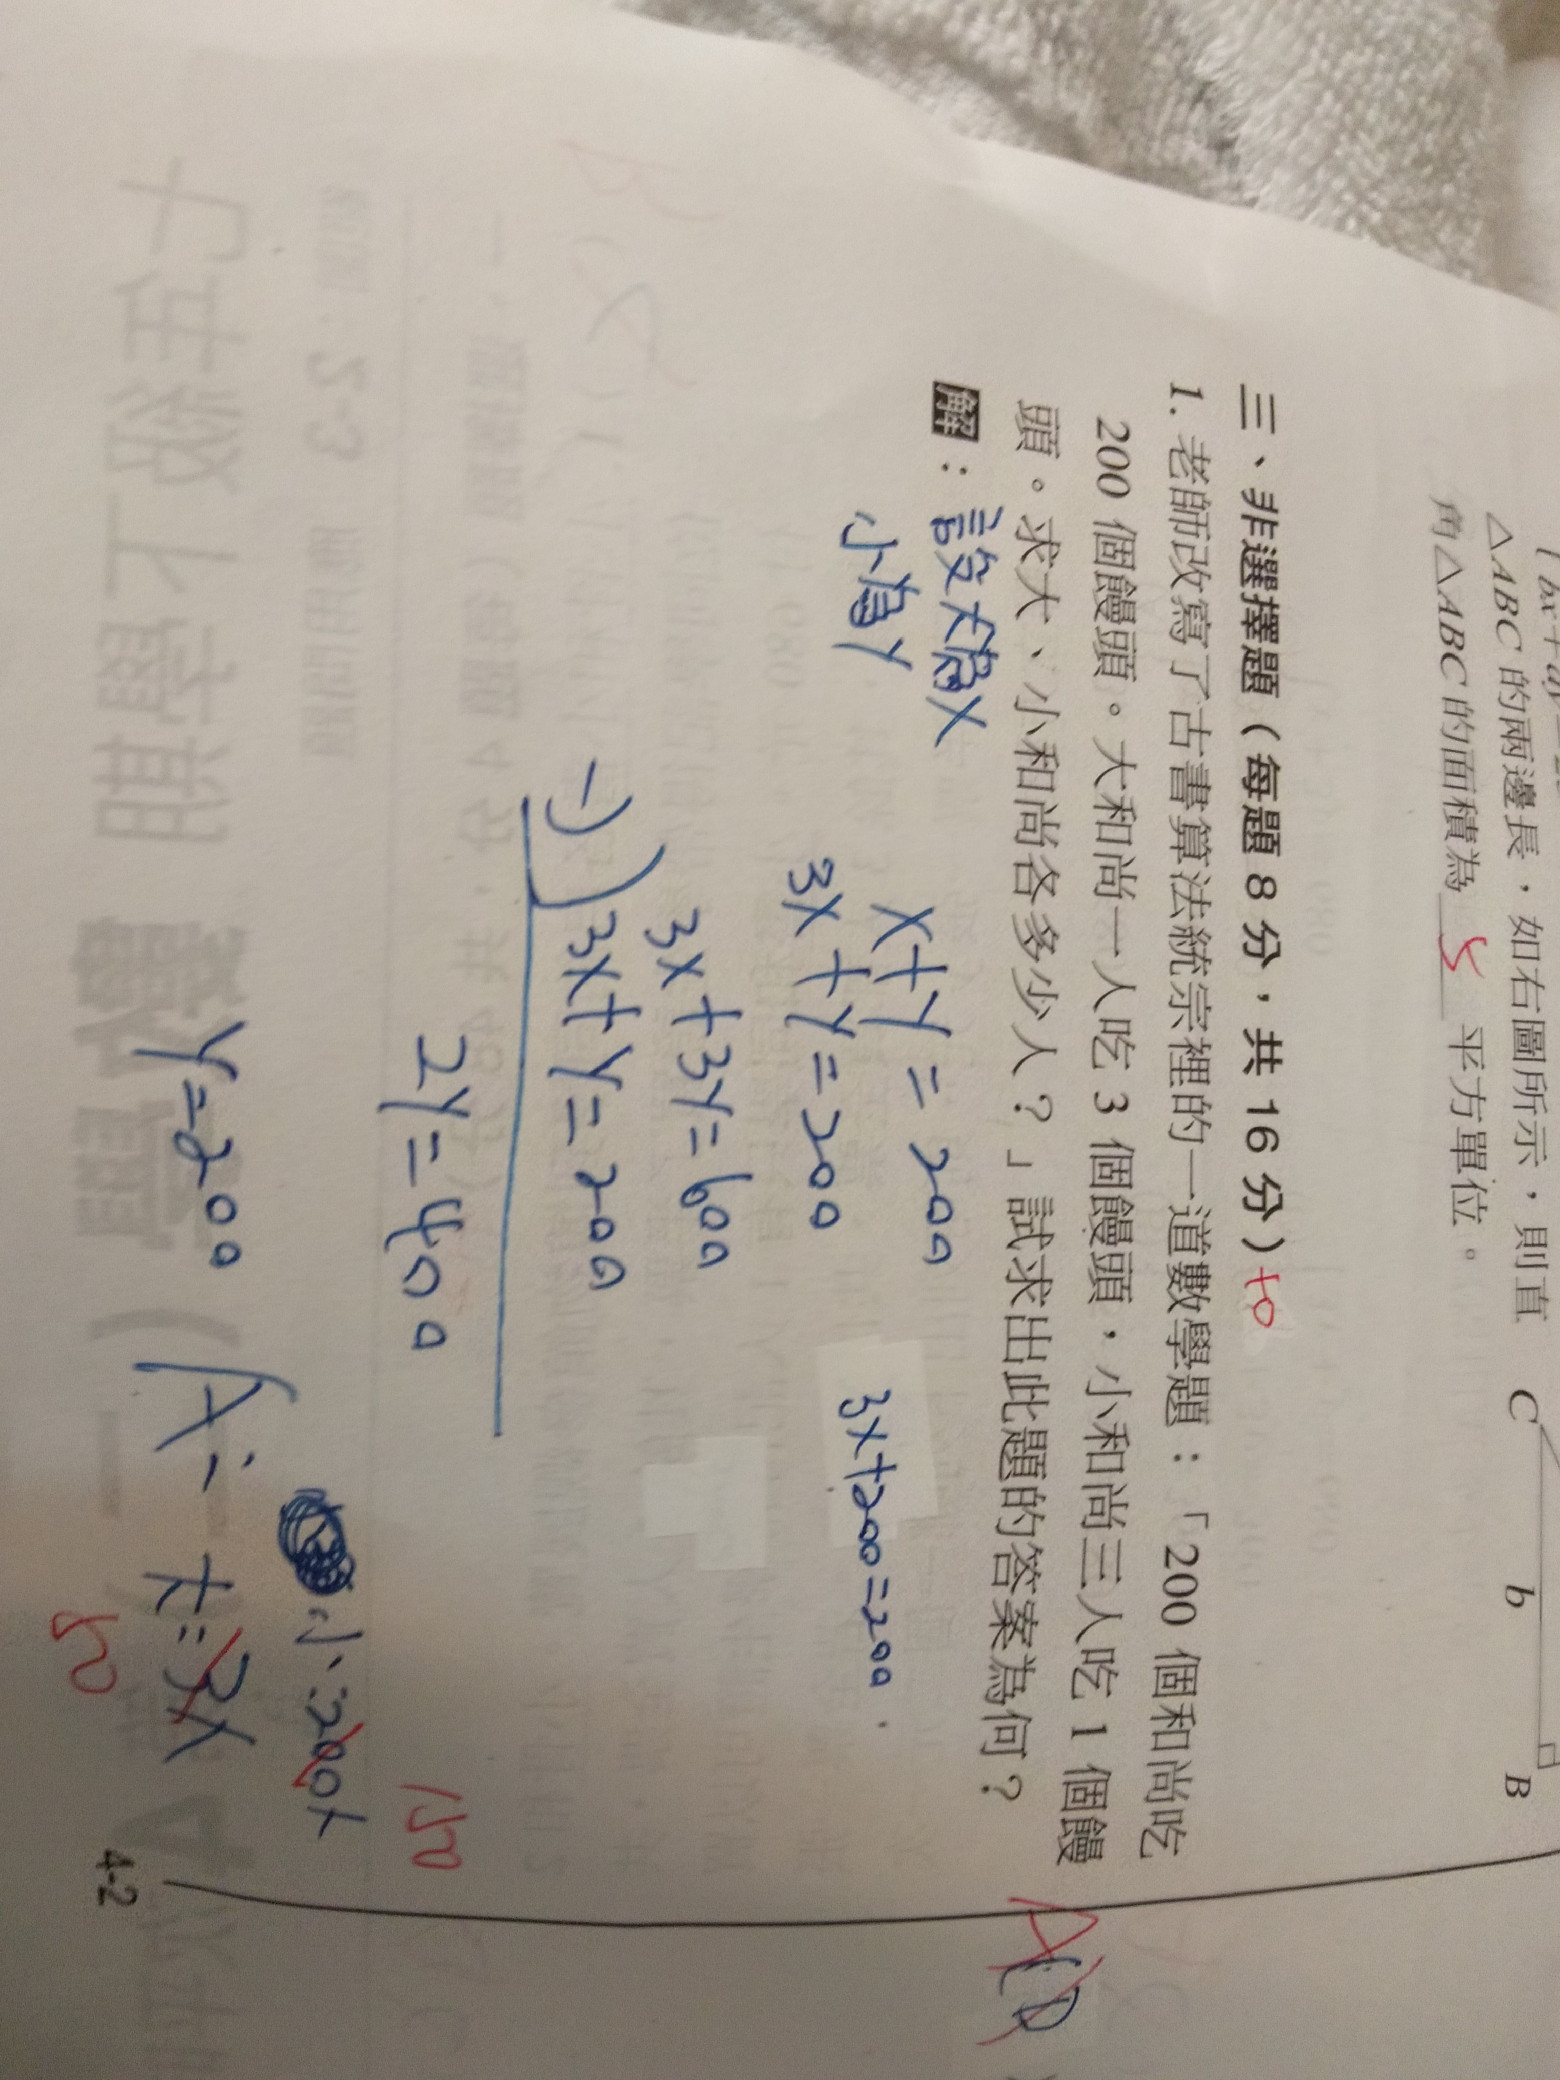 △ABC 的兩邊長，如右圖所示，則直
角△ABC 的面積為 5 平方單位。
C b B
三、非選擇題（每題 8 分，共 16 分）+0
1. 老師改寫了古書算法統宗裡的一道數學題：「200 個和尚吃
200 個饅頭。大和尚一人吃 3 個饅頭，小和尚三人吃 1 個饅
頭。求大、小和尚各多少人？」試求出此題的答案為何？
解：設大為X
小為Y
X+Y=200
3X+Y=200
3X+200=200
3X+3Y=600
-) 3X+Y=200
2Y=400
Y=200
A:
小:200人
150
大:3人
50
4-2